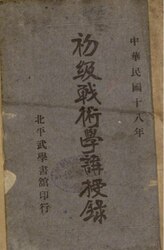 中華民國十八年
初級戰術學講授錄
北平武學書館印行